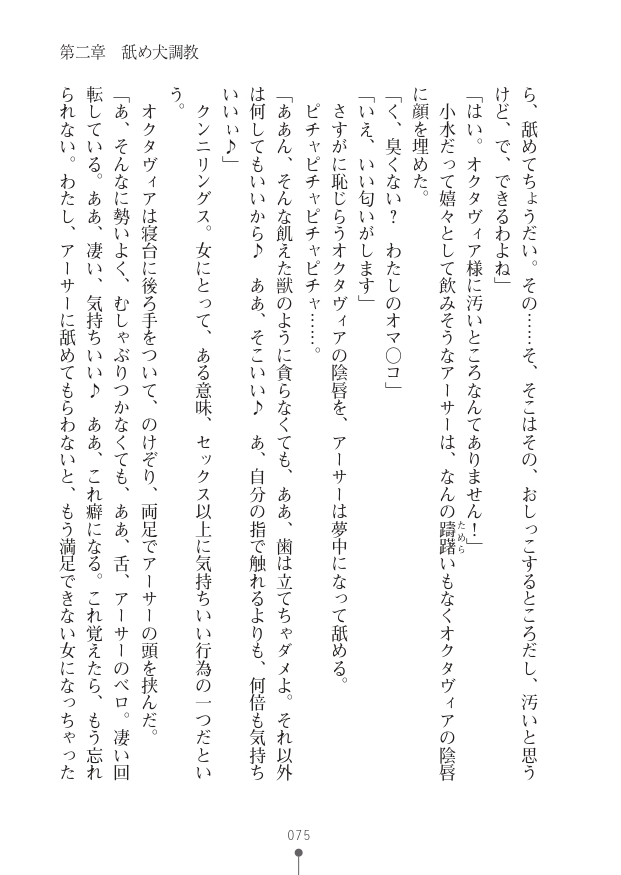 第二章　舐め犬調教
ら、舐めてちょうだい。その……そ、そこはその、おしっこするところだし、汚いと思う
けど、で、できるわよね」
「はい。オクタヴィア様に汚いところなんてありません！」
　小水だって嬉々として飲みそうなアーサーは、なんの躊躇いもなくオクタヴィアの陰唇
に顔を埋めた。
「く、臭くない？　わたしのオマ〇コ」
「いえ、いい匂いがします」
　さすがに恥じらうオクタヴィアの陰唇を、アーサーは夢中になって舐める。
　ピチャピチャピチャピチャ……。
「ああん、そんな飢えた獣のように貪らなくても、ああ、歯は立てちゃダメよ。それ以外
は何してもいいから♪　ああ、そこいい♪　あ、自分の指で触れるよりも、何倍も気持ち
いいぃ♪」
　クンニリングス。女にとって、ある意味、セックス以上に気持ちいい行為の一つだとい
う。
　オクタヴィアは寝台に後ろ手をついて、のけぞり、両足でアーサーの頭を挟んだ。
「あ、そんなに勢いよく、むしゃぶりつかなくても、ああ、舌、アーサーのベロ。凄い回
転している。ああ、凄い、気持ちいい♪　ああ、これ癖になる。これ覚えたら、もう忘れ
られない。わたし、アーサーに舐めてもらわないと、もう満足できない女になっちゃった
075